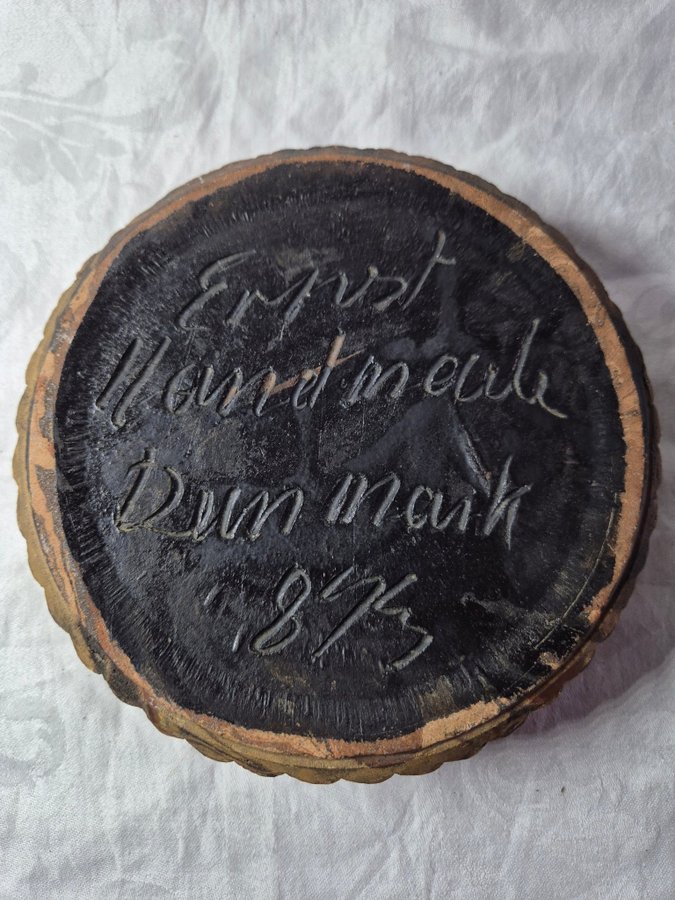 Ernst
Handmade
Danmark
873